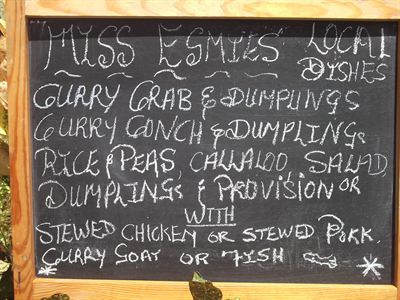 MISS ESMIES' LOCAL DISHES
CURRY CRAB & DUMPLINGS
CURRY CONCH & DUMPLINGS
RICE & PEAS, CALLALOO, SALAD,
DUMPLINGS & PROVISION OR
WITH
STEWED CHICKEN OR STEWED PORK.
CURRY GOAT OR FISH